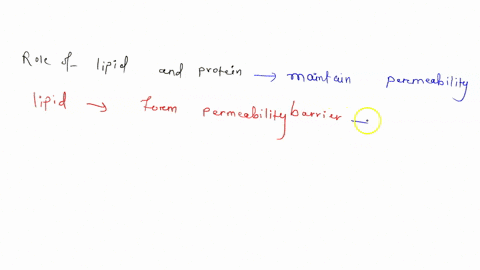 Role of lipid and protein → maintain permeability
lipid → Form permeability barrier →